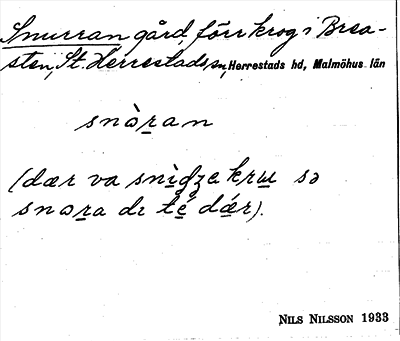 Snurran gård, förr krog i Brea-
sten, St. Herrestads sn, Herrestads hd, Malmöhus län
snòr̲an
(dær va snì̲dʒe kru̲ sə
snɷr̲a dɪ té̲ dǽ̲r).
NILS NILSSON 1933